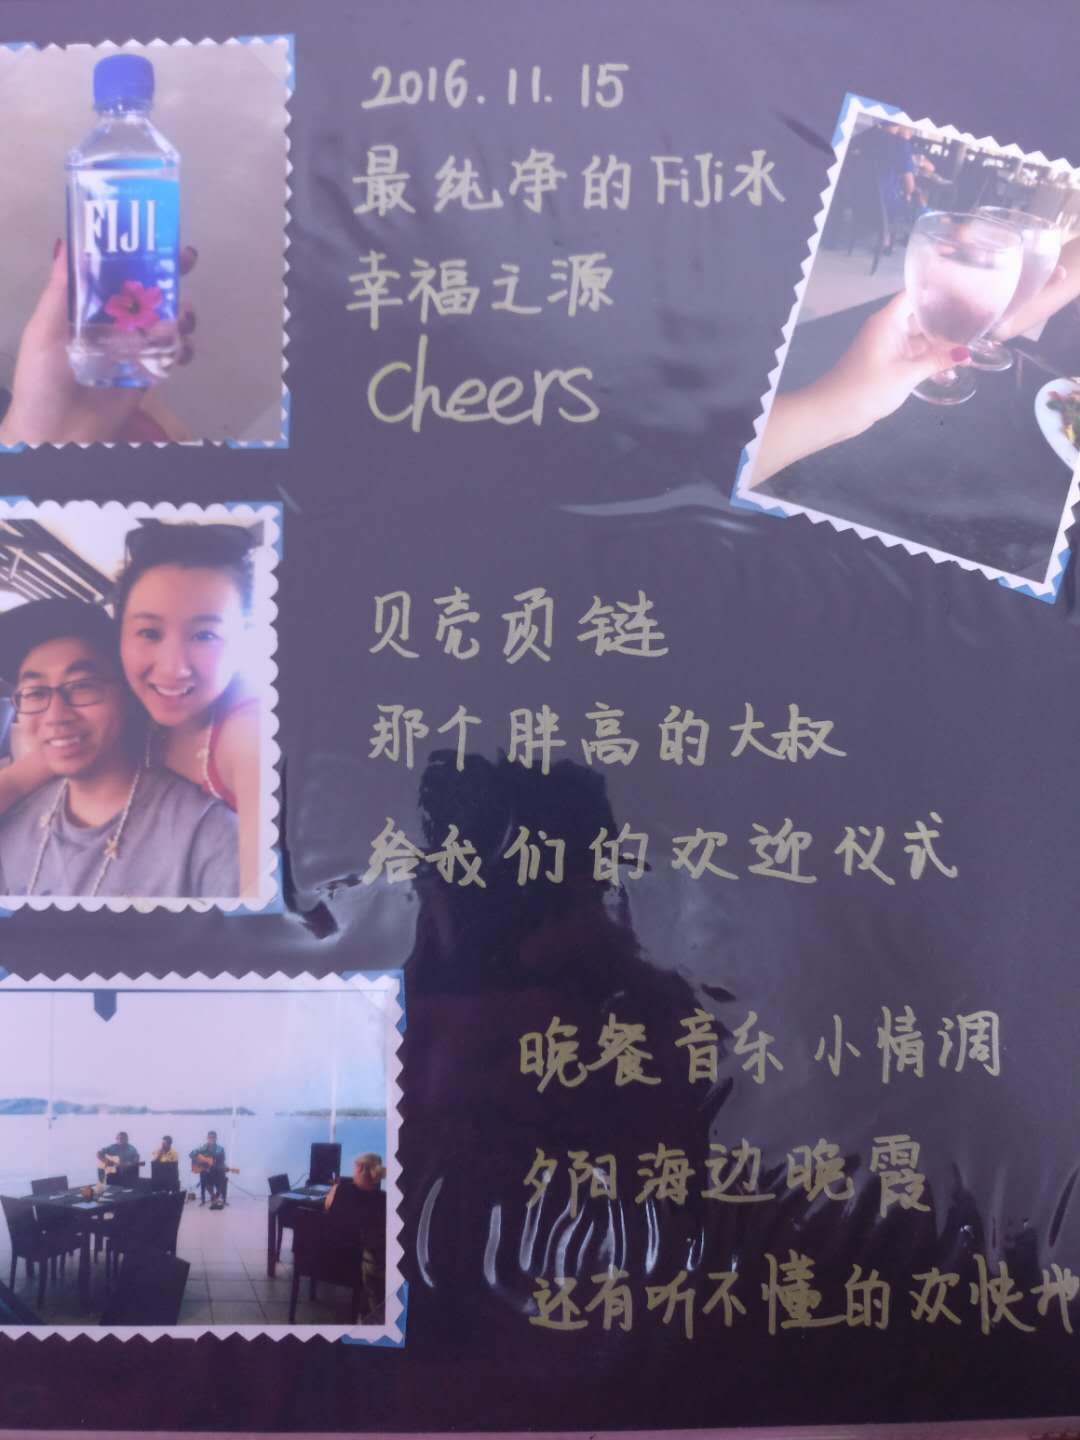 FIJI
2016.11.15
最纯净的FiJi水
幸福之源
Cheers
贝壳项链
那个胖高的大叔
给我们的欢迎仪式
晚餐音乐小情调
夕阳海边晚霞
还有听不懂的欢快